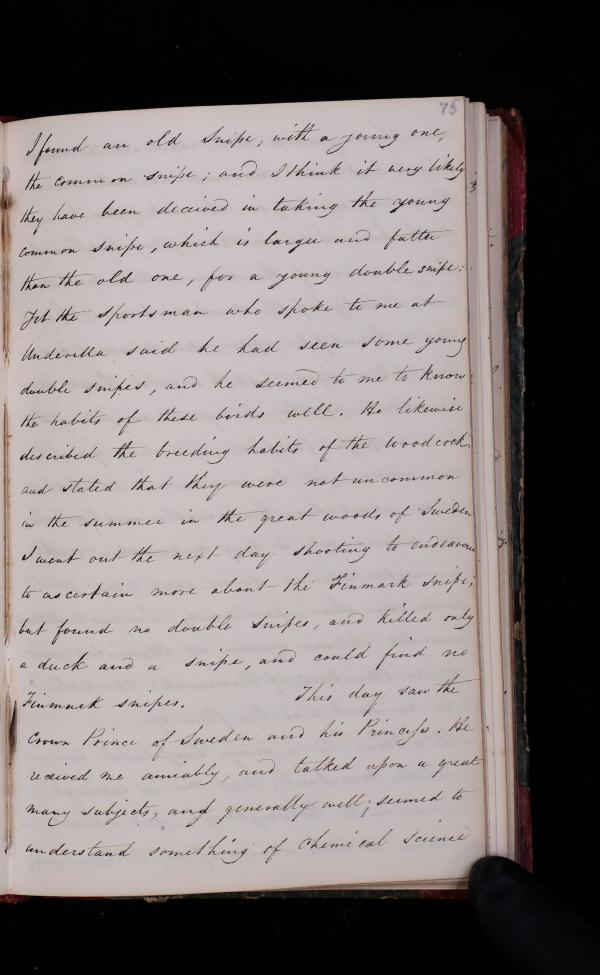 75
I found an old snipe, with a young one,
the common snipe; and I think it very likely
they have been deceived in taking the young
common snipe, which is larger and fatter
than the old one, for a young double snipe:
Yet the sportsman who spoke to me at
said he had seen some young
double snipes, and he seemed to me to know
the habits of these birds well. He likewise
described the breeding habits of the woodcock,
and stated that they were not uncommon
in the summer in the great woods of Sweden
I went out the next day shooting to endeavour
to ascertain more about the Finmark snipe;
but found no double snipes, and killed only
a duck and a snipe, and could find no
Finmark snipes. This day saw the
Crown Prince of Sweden and his Princess. He
received me amiably, and talked upon a great
many subjects, and generally well; seemed to
understand something of chemical science